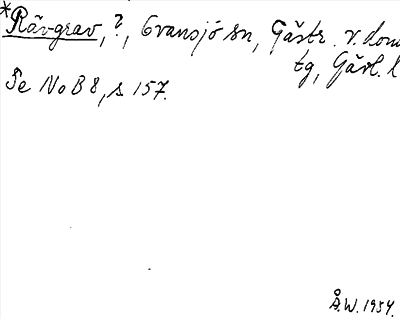 *Rävgrav, ?, Ovansjö sn, Gästr. v. dom
tg, Gävl. l
Se NoB 8, s 157.
Å.W. 1954.